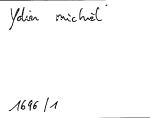 Ydier michel
1696/1